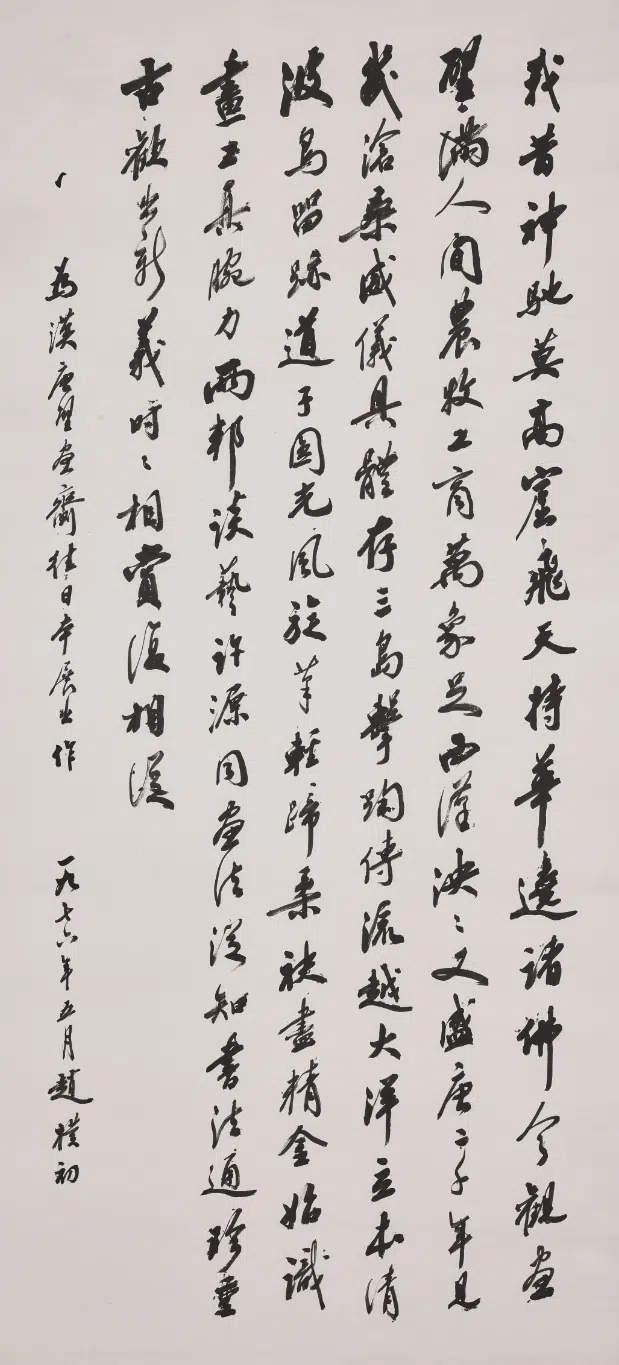 我昔神馳莫高窟飛天持華遶諸佛今觀画
壁滿人間農牧工商萬象足西漢泱〻又盛唐二千年見
幾滄桑威儀具體存三島擊鞠傳流越大洋立本清
波鳥留跡道子國光風旋筆輕蹄柔袂盡精金始識
畫士真腕力兩邦談藝許源同画法從知書法通珍重
古歡出新義時〻相賞復相從
為漢唐壁画齊往日本展出作
一九七六年五月趙樸初